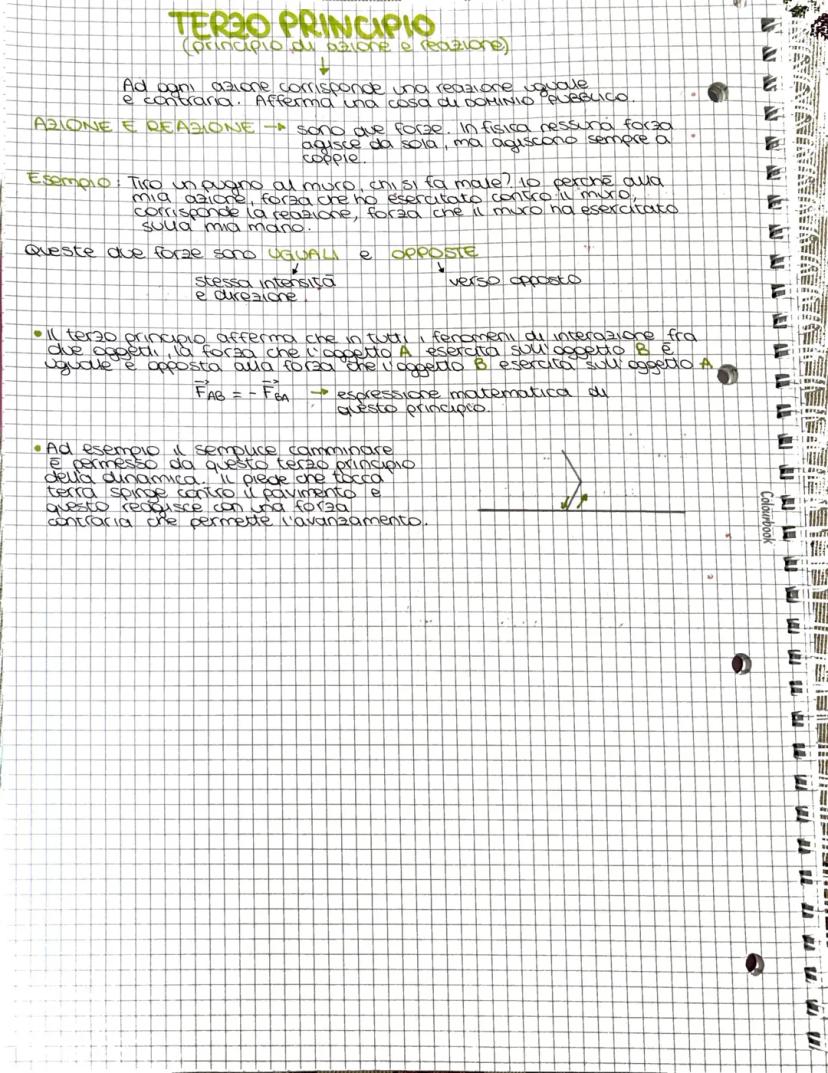 TERZO PRINCIPIO
(principio di azione e reazione)
Ad ogni azione corrisponde una reazione uguale
e contraria. Afferma una cosa di DOMINIO PUBBLICO.
AZIONE E REAZIONE → sono due forze. In fisica nessuna forza
agisce da sola, ma agiscono sempre a
coppie.
Esempio: Tiro un pugno al muro, chi si fa male? Io perchē alla
mia azione, forza che ho esercitato contro il muro,
corrisponde la reazione, forza che il muro ha esercitato
sulla mia mano.
Queste due forze sono UGUALI e OPPOSTE
stessa intensitā
e direzione.
verso opposto
• Il terzo principio afferma che in tutti i fenomeni di interazione fra
due oggetti, la forza che l'oggetto A esercita sull'oggetto B ē
uguale e opposta alla forza che l'oggetto B esercita sull'oggetto A.
F⃗AB = - F⃗BA → espressione matematica di
questo principio.
• Ad esempio il semplice camminare
ē permesso da questo terzo principio
della dinamica. Il piede che tocca
terra spinge contro il pavimento e
questo reagisce con una forza
contraria che permette l'avanzamento.
Colourbook